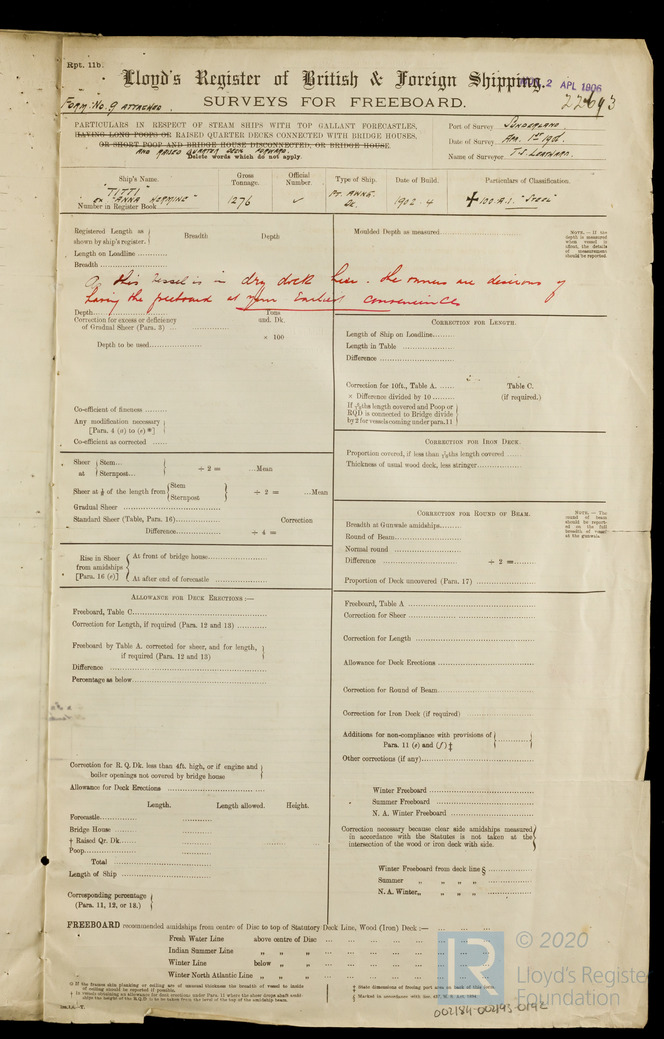 Rpt. 11b.
Lloyd's Register of British & Foreign Shipping.
2 APL 1906
FORM No. 9 ATTACHED
SURVEYS FOR FREEBOARD.
22693
PARTICULARS IN RESPECT OF STEAM SHIPS WITH TOP GALLANT FORECASTLES,
HAVING LONG POOPS OR RAISED QUARTER DECKS CONNECTED WITH BRIDGE HOUSES,
OR SHORT POOP AND BRIDGE HOUSE DISCONNECTED, OR BRIDGE HOUSE
AND RAISED QUARTER DECK FORWARD.
Delete words which do not apply.
Port of Survey SUNDERLAND
Date of Survey
Name of Surveyor
Ship's Name. Gross Tonnage. Official Number. Type of Ship. Date of Build. Particulars of Classification.
"TITTI"
"ANNA HORMINE" 1276 1902.4 100 A.1. "Steel"
Number in Register Book
Registered Length as shown by ship's register. Breadth Depth
Moulded Depth as measured
NOTE.—If the depth is measured when vessel is afloat, the details of measurement should be reported.
Length on Loadline
Breadth
this vessel is in dry dock here. The owners are desirous of
having the freeboard at your Earliest convenience
Depth
Correction for excess or deficiency of Gradual Sheer (Para. 3)
Tons und. Dk.
× 100
Depth to be used
Co-efficient of fineness
Any modification necessary [Para. 4 (a) to (e) *]
Co-efficient as corrected
Sheer at Stem
Sternpost
÷ 2 = Mean
Sheer at ⅛ of the length from Stem
Sternpost
÷ 2 = Mean
Gradual Sheer
Standard Sheer (Table, Para. 16) Correction
Difference ÷ 4 =
Rise in Sheer from amidships [Para. 16 (e)]
At front of bridge house
At after end of forecastle
ALLOWANCE FOR DECK ERECTIONS :—
Freeboard, Table C
Correction for Length, if required (Para. 12 and 13)
Freeboard by Table A. corrected for sheer, and for length, if required (Para. 12 and 13)
Difference
Percentage as below
Correction for R. Q. Dk. less than 4ft. high, or if engine and boiler openings not covered by bridge house
Allowance for Deck Erections
Length. Length allowed. Height.
Forecastle
Bridge House
† Raised Qr. Dk.
Poop
Total
Length of Ship
Corresponding percentage (Para. 11, 12, or 13.)
CORRECTION FOR LENGTH.
Length of Ship on Loadline
Length in Table
Difference
Correction for 10ft., Table A. Table C.
× Difference divided by 10 (if required.)
If ths length covered and Poop or RQD is connected to Bridge divide by 2 for vessels coming under para. 11
CORRECTION FOR IRON DECK.
Proportion covered, if less than ths length covered
Thickness of usual wood deck, less stringer
CORRECTION FOR ROUND OF BEAM.
Breadth at Gunwale amidships
Round of Beam
Normal round
Difference ÷ 2 =
Proportion of Deck uncovered (Para. 17)
NOTE.—The round of beam should be reported on the full breadth of vessel at the gunwale.
Freeboard, Table A
Correction for Sheer
Correction for Length
Allowance for Deck Erections
Correction for Round of Beam
Correction for Iron Deck (if required)
Additions for non-compliance with provisions of Para. 11 (e) and (f) ‡
Other corrections (if any)
Winter Freeboard
Summer Freeboard
N. A. Winter Freeboard
Correction necessary because clear side amidships measured in accordance with the Statutes is not taken at the intersection of the wood or iron deck with side.
Winter Freeboard from deck line §
Summer „ „ „ „
N. A. Winter „ „ „ „
FREEBOARD recommended amidships from centre of Disc to top of Statutory Deck Line, Wood (Iron) Deck :—
Fresh Water Line above centre of Disc
Indian Summer Line „ „ „
Winter Line below „ „
Winter North Atlantic Line „ „ „
‡ State dimensions of freeing port area on back of this form.
© 2020
Lloyd's Register
Foundation
002184-002193-0192